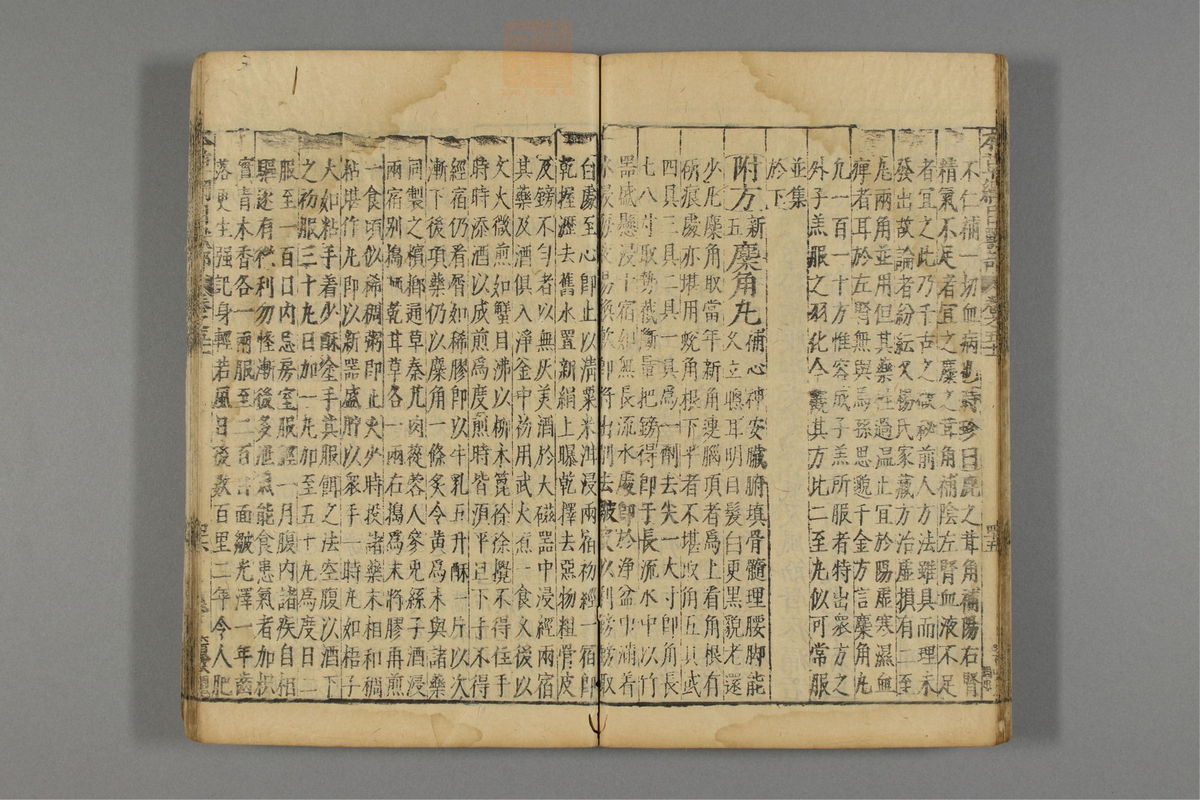 不仁補一切血病也時珍曰鹿之茸角補陽右腎
精氣不足者宜之麋之茸角補陰左腎血液不足
者宜之此乃千古之微秘前人方法雖具而理未
發出故論者紛紜又楊氏家藏方治虛損有二至
丸兩角並用但其藥性過溫止宜於陽虛寒濕血
痺者耳於左腎無與焉孫思邈千金方言麋角丸
凡一百一十方惟容成子羔所服者特出衆方之
外子羔服之羽化今觀其方比二至丸似可常服
並集
於下
附方 新五 麋角丸 補心神安臟腑填骨髓理腰脚能
久立聰耳明目髮白更黑貌老還
少凡麋角取當年新角連腦頂者為上看角根有
斫痕處亦堪用蛻角根下平者不堪取角五具或
四具三具二具一具為一劑去尖一大寸即角長
七八寸取勢截斷量把鎊得即于長流水中以竹
器盛懸浸十宿如無長流水處即於淨盆中滿着
水浸每夜易換軟即將出削去皺皮以利鎊鎊取
白處至心即止以清粟米泔浸兩宿初經一宿即
乾握瀝去舊水置新絹上曝乾擇去惡物粗骨皮
及鎊不勻者以無灰美酒於大磁器中浸經兩宿
其藥及酒俱入淨釜中初用武火煮一食久後以
文火微煎如蟹目沸以柳木篦徐徐攪不得住手
時時添酒以成煎為度煎時皆須平旦下手不得
經宿仍看屑如稀膠即以牛乳五升酥一斤以次
漸下後項藥仍以麋角一條炙令黄為末與諸藥
同製之檳榔通草秦艽肉蓯蓉人參兔絲子酒浸
兩宿别搗晒乾甘草各一兩右搗為末將膠再煎
一食頃似稀稠粥即止火少時投諸藥末相和稠
粘堪作丸即以新器盛貯以衆手一時丸如梧子
大如粘手着少酥塗手其服餌之法空腹以酒下
之初服三十丸日加一丸加至五十丸為度日二
服至一百日内忌房室服經一月腹内諸疾自相
驅逐有微利勿怪漸後多泄氣能食患氣者加枳
實青木香各一兩服至二百日面皺光澤一年齒
落更生强記身輕若風日後數百里二年令人肥